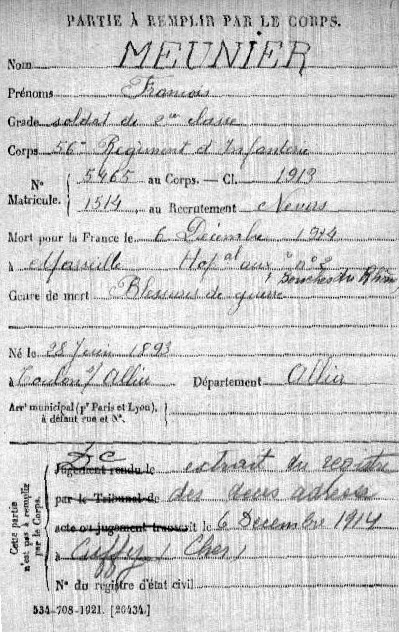 PARTIE À REMPLIR PAR LE CORPS.
Nom MEUNIER
Prénoms François
Grade soldat de 2me classe
Corps 56me Régiment d'Infanterie
N° Matricule. { 5465 au Corps. — Cl. 1913
1514 au Recrutement Nevers
Mort pour la France le 6 Décembre 1914
à Marseille Hop al aux n° 2 Bouches du Rhône
Genre de mort Blessures de guerre
Né le 28 Juin 1893
à Toulon s/ Allier Département Allier
Arrt municipal (pr Paris et Lyon), à défaut rue et N°.
Cette partie n'est pas à remplir par le Corps.
Jugement rendu le extrait du
par le Tribunal de des
acte ou jugement transcrit le 6 Décembre 1914
à Cuffy (Cher)
N° du registre d'état civil
534-708-1921. [26434.]